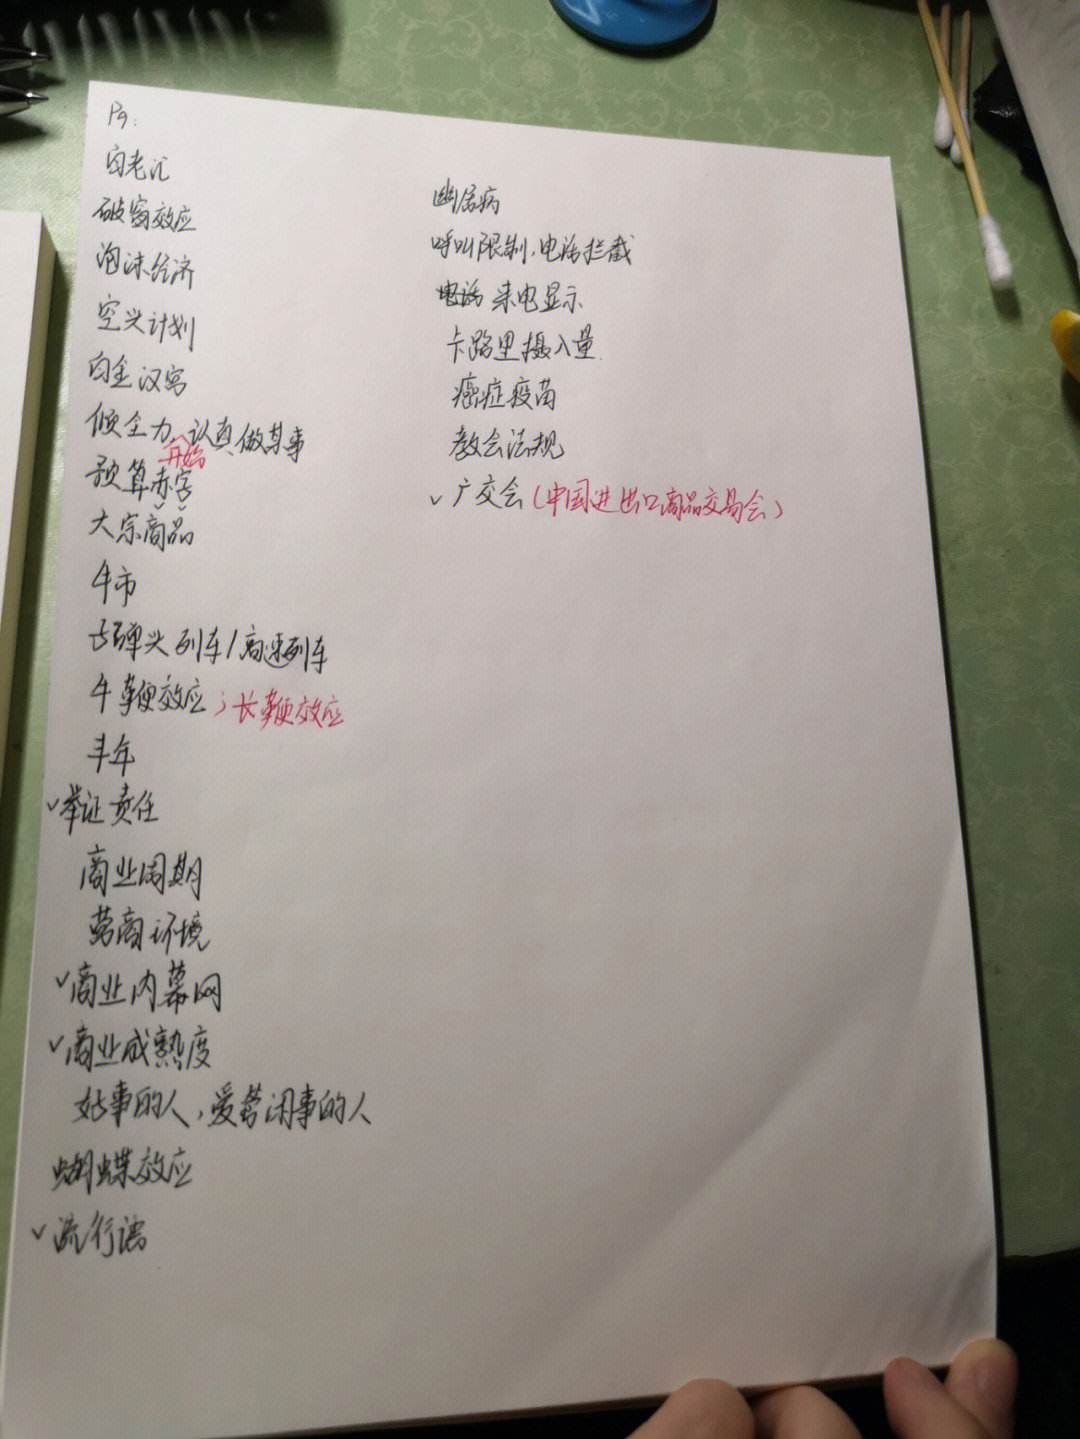 P9:
百老汇
破窗效应
泡沫经济
空头计划
白金汉宫
倾全力, 开始认真做某事
预算赤字
大宗商品
牛市
子弹头列车/高速列车
牛鞭效应;长鞭效应
丰年
✓举证责任
商业周期
营商环境
✓商业内幕网
✓商业成熟度
好事的人,爱管闲事的人
蝴蝶效应
✓流行语
幽居病
呼叫限制,电话拦截
来电显示
卡路里摄入量
癌症疫苗
教会法规
✓广交会(中国进出口商品交易会)